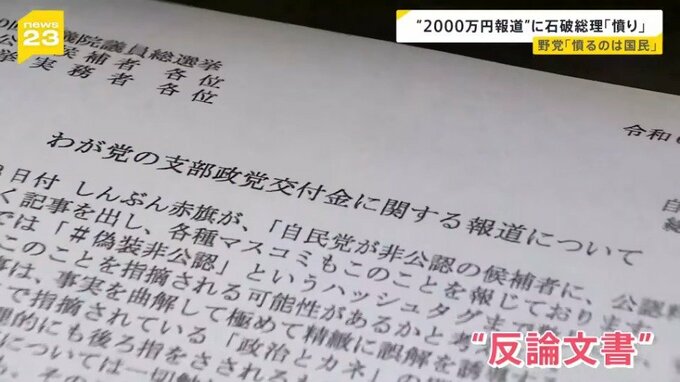 news23
"2000万円報道"に石破総理「憤り」
野党「憤るのは国民」
議院議員総選挙
候補者 各位
挙実務者 各位
令和
わが党の支部政党交付金に関する報道について
日付 しんぶん赤旗が、「自民党が非公認の候補者に、公認料
く記事を出し、各種マスコミもこのことを報じております
では「#偽装非公認」というハッシュタグま
このことを指摘される可能性があるかと考
事は、事実を曲解して極めて精緻に誤解を誘
で指摘されている「政治とカネ」の
理的にも後ろ指をさされ
については一切触
"反論文書"